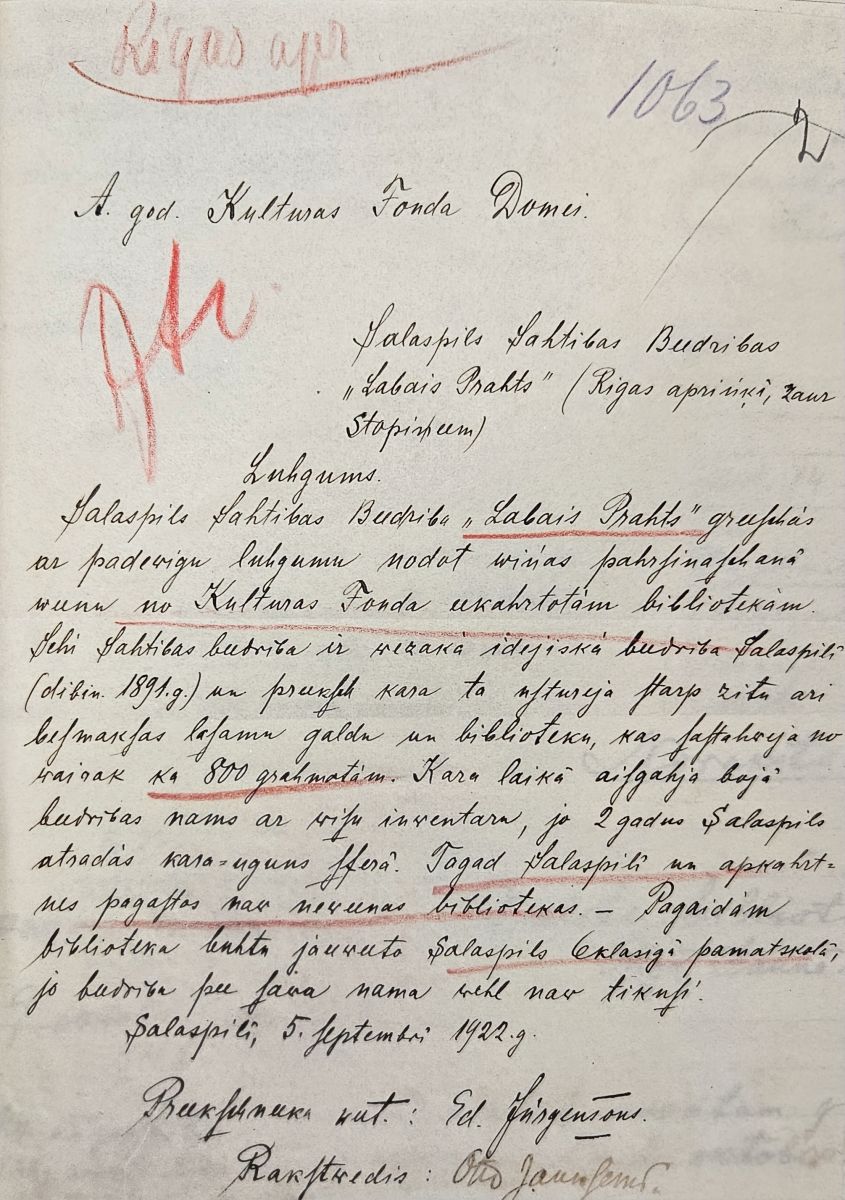 Rigas apr
1063
A. god. Kulturas Fonda Domei.
Salaspils Sahtibas Beedribas
„Labais Prahts" (Rigas apriņķī, zaur
Stopiņeem)
Luhgums.
Salaspils Sahtibas Beedriba „Labais Prahts" greeschás
ar padewigu luhgumu nodot wiņas pahrsinaschanâ
weenu no Kulturas Fonda eekahrtotám bibliotekám.
Schi Sahtibas beedriba ir wezakâ idejiskâ beedriba Salaspilî
(dibin. 1891.g.) un preeksch kara ta ustureja starp zitu ari
besmaksas lasamu galdu un biblioteku, kas sastahweja no
wairak ka 800 grahmotám. Kara laikâ aisgahja bojâ
beedribas nams ar wisu inwentaru, jo 2 gadus Salaspils
atradás kara=uguns sferâ. Tagad Salaspilî un apkahrt=
nes pagastos naw neweenas bibliotekas. — Pagaidám
biblioteka buhtu jaeweeto Salaspils 6klasigâ pamatskolâ,
jo beedriba pee sawa nama wehl naw tikusi.
Salaspilî, 5. septembrî 1922.g.
Preekschneeka weet.: Ed. Jürgensons.
Rakstwedis: Otto